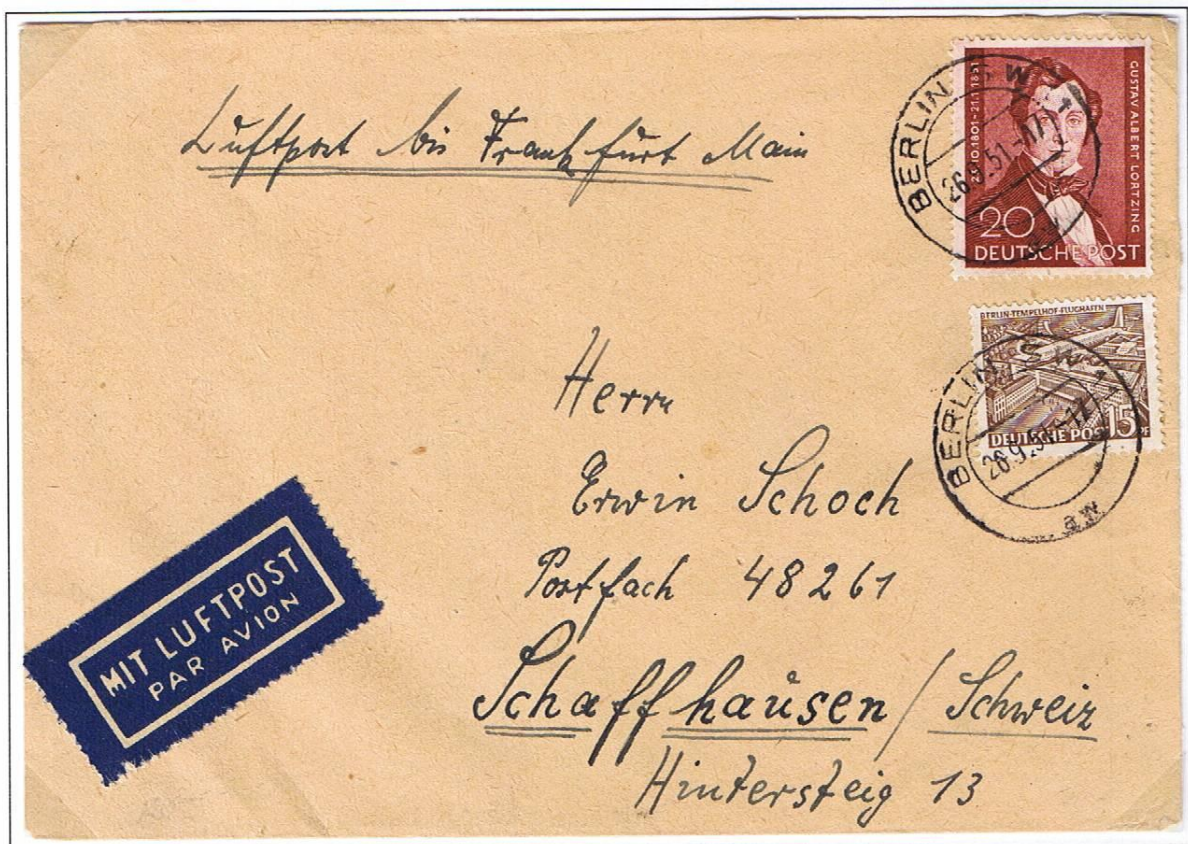 Luftpost bis Frankfurt Main
29.10.1801-21.1.1851
GUSTAV ALBERT LORTZING
20
DEUTSCHE POST
BERLIN SW 11
26.9.51.-17
BERLIN-TEMPELHOF-FLUGHAFEN
15 PF
DEUTSCHE POST
BERLIN SW 11
26.9.51.-17
aw
Herrn
Erwin Schoch
Postfach 48261
Schaffhausen / Schweiz
Hintersteig 13
MIT LUFTPOST
PAR AVION